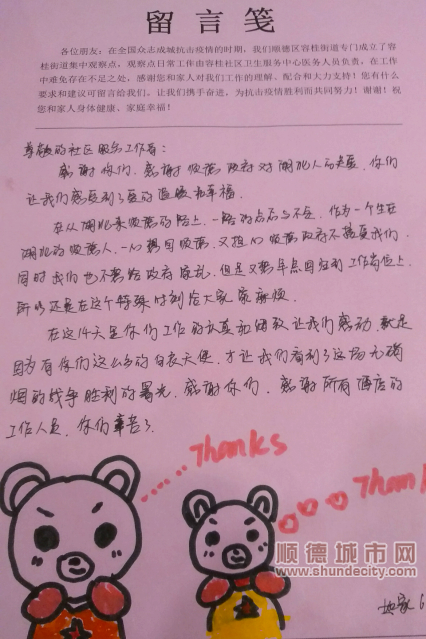 留言笺
各位朋友：在全国众志成城抗击疫情的时期，我们顺德区容桂街道专门成立了容
桂街道集中观察点，观察点日常工作由容桂社区卫生服务中心医务人员负责，在工作
中难免存在不足之处，感谢您和家人对我们工作的理解、配合和大力支持！您有什么
要求和建议可留言给我们，让我们携手奋进，为抗击疫情胜利而共同努力！谢谢！祝
您和家人身体健康、家庭幸福！
尊敬的社区服务工作者：
感谢你们，感谢顺德政府对湖北人的关爱，你们
让我们感受到了爱的温暖和幸福。
在从湖北来顺德的路上，一路的忐忑与不安，作为一个生在
湖北的顺德人，一心想回顺德，又担心顺德政府不接受我们，
同时我们也不想给政府添乱，但是又想早点回到工作岗位上，
所以还是在这个特殊时刻给大家添麻烦。
在这14天是你们工作的认真和细致让我们感动，就是
因为有你们这么多的白衣天使，才让我们看到了这场无硝
烟的战争胜利的曙光，感谢你们，感谢所有酒店的
工作人员，你们辛苦了。
Thanks
Thank
顺德城市网
www.shundecity.com